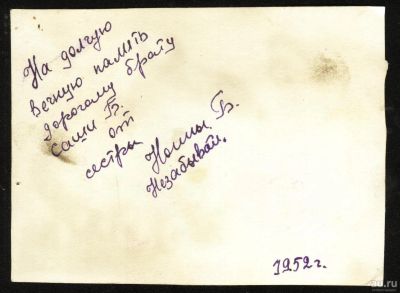 На долгую
вечную память
дорогому брату
Саши Б.
от
сестры Нонны Б.
Незабывай.
1952 г.